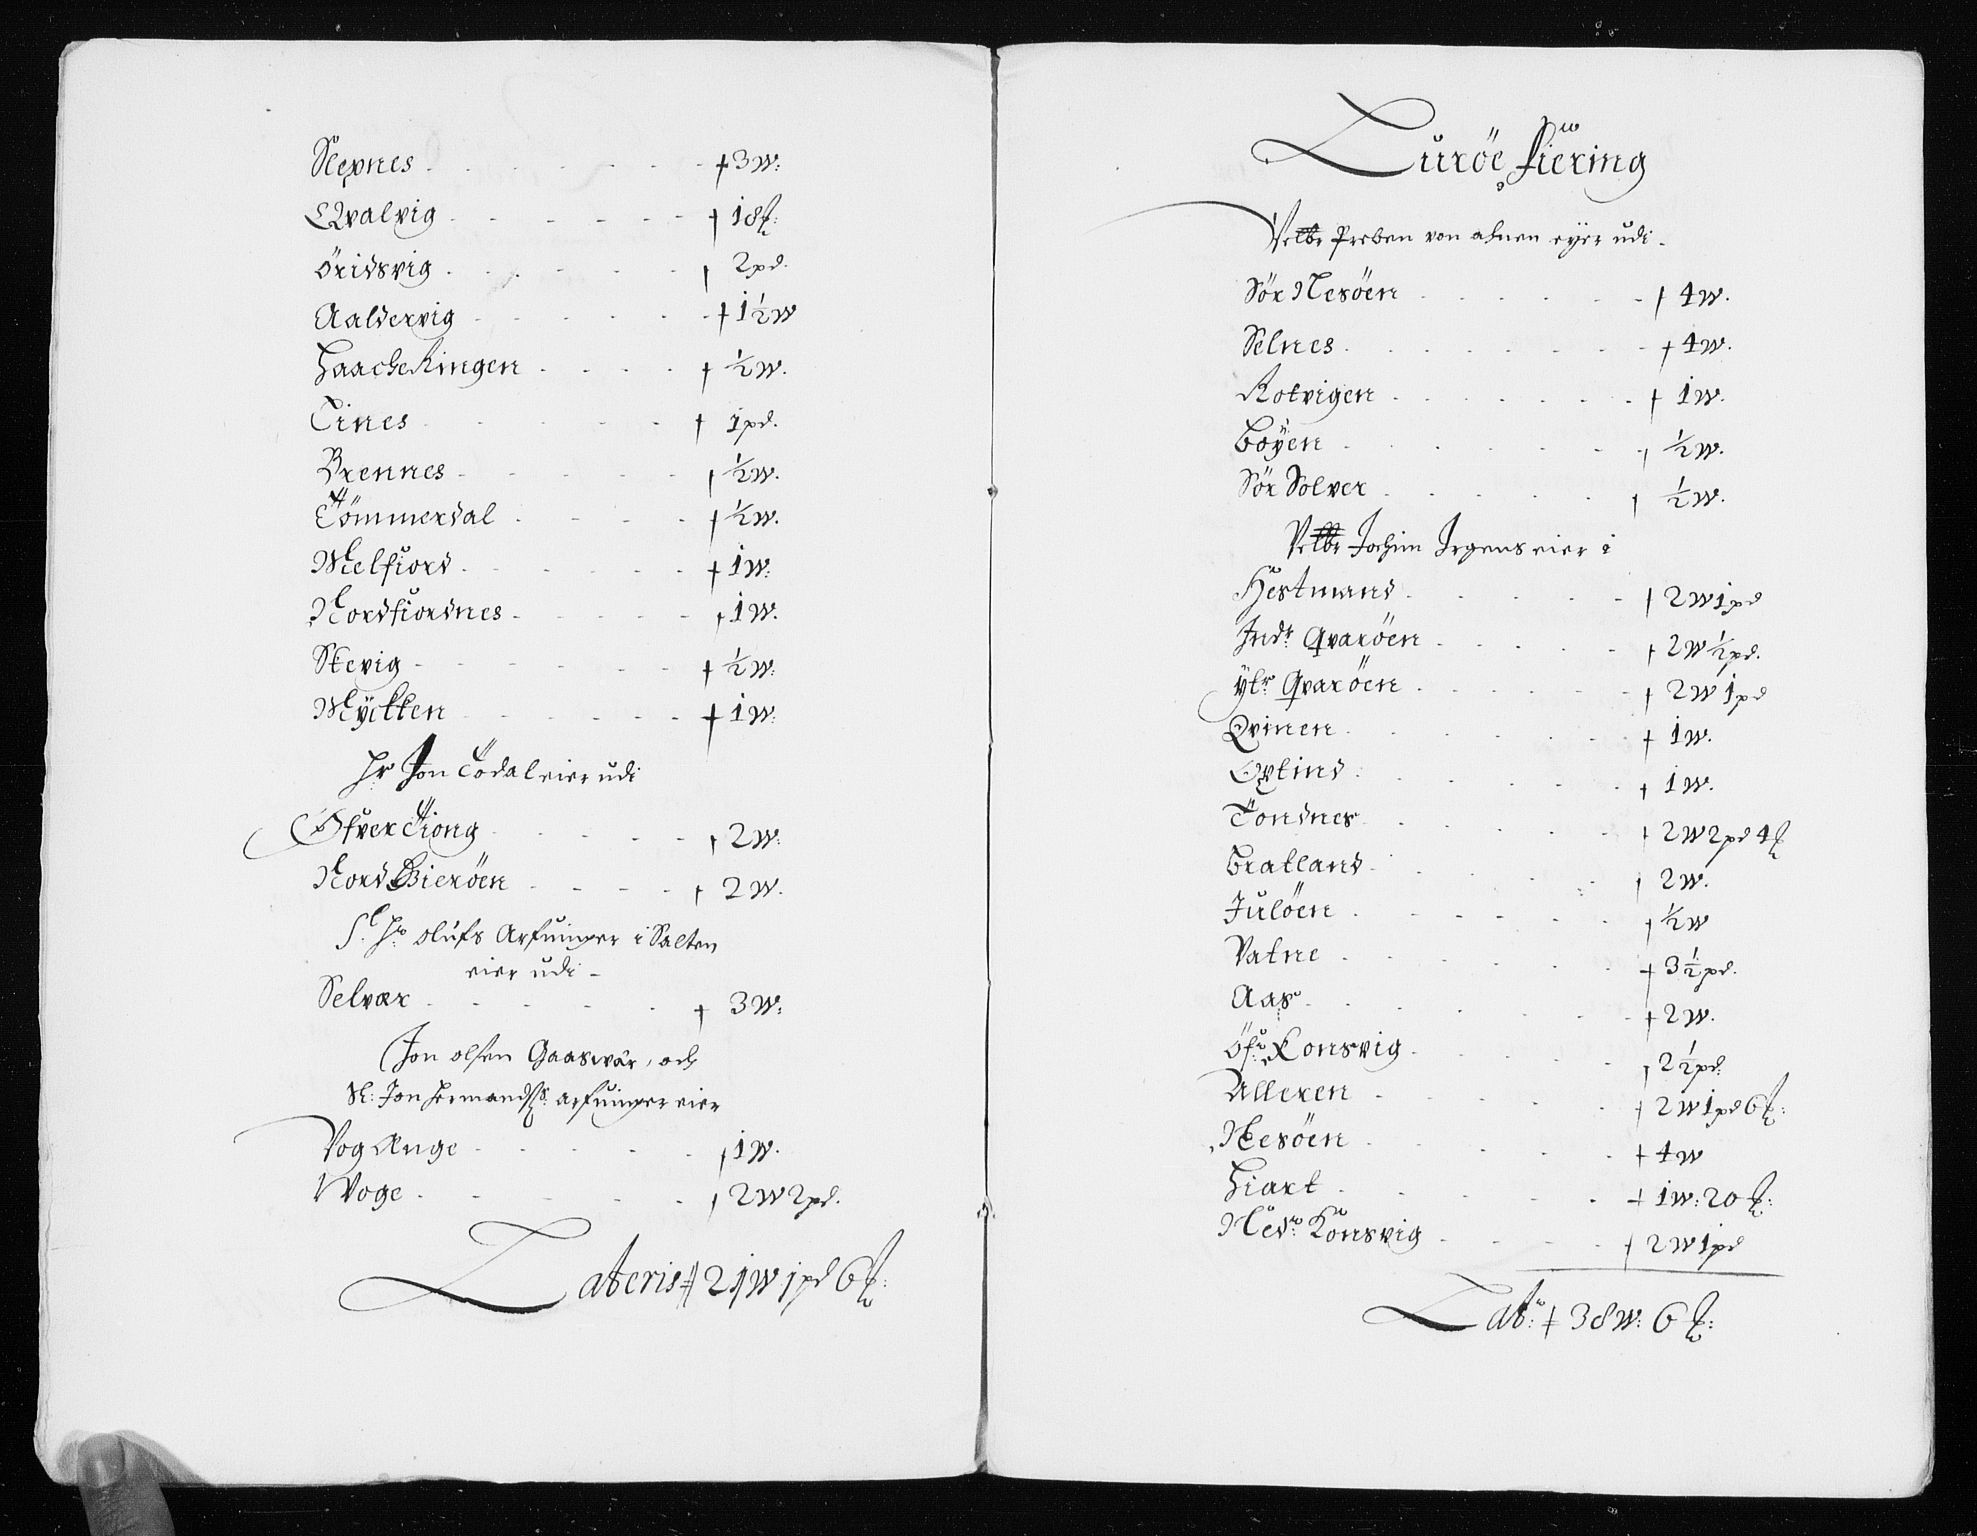 Slepnes . . . . . . . † 3 W:
Qvalvig . . . . . . † 18 ℔:
öridsvig . . . . . . † 2 pd.
Aaldervig . . . . . . † 1½ W
Haacheringen . . . . † ½ W.
Tines . . . . . . † 1 pd.
Brennes . . . . . . † ½ W.
Tömmerdal . . . . † ½ W.
Melfiord . . . . . . † 1 W:
Nordfiordnes . . . . . † 1 W.
Stevig . . . . . . † ½ W:
Mÿckken . . . . . . † 1 W:
Hr Jon Södal eier udi
Ofver Tiong . . . . . † 2 W:
Nord Bieröen . . . . † 2 W.
Sl. Hr. Olufs Arfuinger i Salten
eier udi –
Selvær . . . . . † 3 W:
Jon olsen Gaaswær, och
Sl: Jon Hermandss: arfuinger eier
Vog Ænge . . . . . . † 1 W.
Woge . . . . . . † 2 W 2 pd.
Lateris † 21 W 1 pd 6 ℔:
Luröe fiering
Velbr Preben von ahnen eÿer udi –
Sör Nesöen . . . . . . † 4 W.
Selnes . . . . . . . † 4 W.
Rotvigen . . . . . . . † 1 W.
Boÿen . . . . . . . † ½ W.
Sör Solver . . . . . † ½ W.
Velbr Jochim Irgens eier i
Hestmand . . . . . † 2 W 1 pd
Indr Qvaröen . . . . . † 2 W ½ pd.
ÿtr Qvaröen . . . . . . † 2 W 1 pd
Qvinen . . . . . . † 1 W.
Oxtind . . . . . . † 1 W.
Tondnes . . . . . . † 2 W 2 pd 4 ℔
Bratland . . . . . . † 2 W.
Julöen . . . . . . † ½ W
Vatne . . . . . . † 3½ pd.
Aas . . . . . . . † 2 W.
Öfr: Konsvig . . . . . † 2½ pd:
Alleren . . . . . † 2 W 1 pd 6 ℔:
Nesöen . . . . . † 4 W
Hiart . . . . . . † 1 W: 20 ℔:
Nedr Konsvig . . . . † 2 W 1 pd
Latr: † 38 W: 6 ℔: